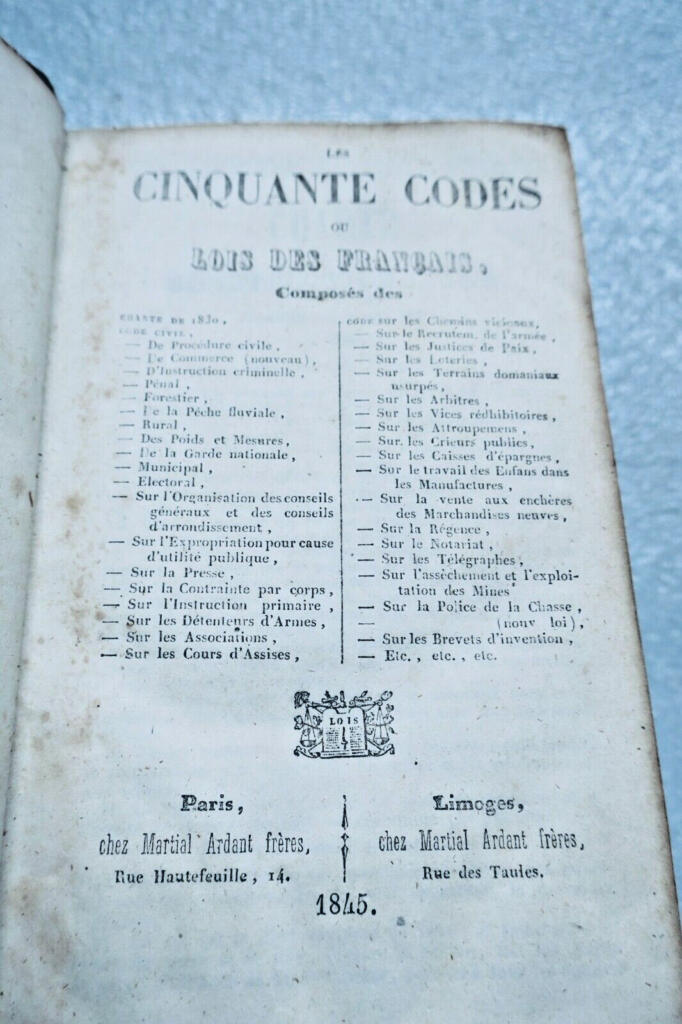 LES
CINQUANTE CODES
OU
LOIS DES FRANÇAIS,
Composés des
CHARTE DE 1830,
CODE CIVIL,
— De Procédure civile,
— De Commerce (nouveau),
— D'Instruction criminelle,
— Pénal,
— Forestier,
— De la Pêche fluviale,
— Rural,
— Des Poids et Mesures,
— De la Garde nationale,
— Municipal,
— Electoral,
— Sur l'Organisation des conseils
généraux et des conseils
d'arrondissement,
— Sur l'Expropriation pour cause
d'utilité publique,
— Sur la Presse,
— Sur la Contrainte par corps,
— Sur l'Instruction primaire,
— Sur les Détenteurs d'Armes,
— Sur les Associations,
— Sur les Cours d'Assises,
CODE sur les Chemins vicinaux,
— Sur le Recrutem. de l'armée,
— Sur les Justices de Paix,
— Sur les Loteries,
— Sur les Terrains domaniaux
usurpés,
— Sur les Arbitres,
— Sur les Vices rédhibitoires,
— Sur les Attroupemens,
— Sur les Crieurs publics,
— Sur les Caisses d'épargnes,
— Sur le travail des Enfans dans
les Manufactures,
— Sur la vente aux enchères
des Marchandises neuves,
— Sur la Régence,
— Sur le Notariat,
— Sur les Télégraphes,
— Sur l'assèchement et l'exploi-
tation des Mines
— Sur la Police de la Chasse,
— (nouv loi),
— Sur les Brevets d'invention,
— Etc., etc., etc.
LOIS
Paris,
chez Martial Ardant frères,
Rue Hautefeuille, 14.
Limoges,
chez Martial Ardant frères,
Rue des Taules.
1845.